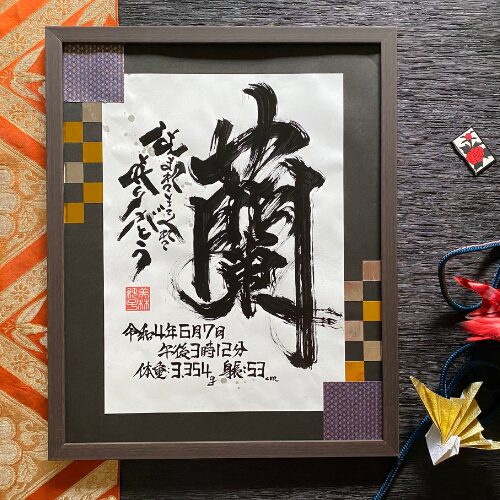 蘭
生まれてきてくれて
ありがとう
令和4年6月7日
午後3時12分
体重:3.354g 身長:53cm